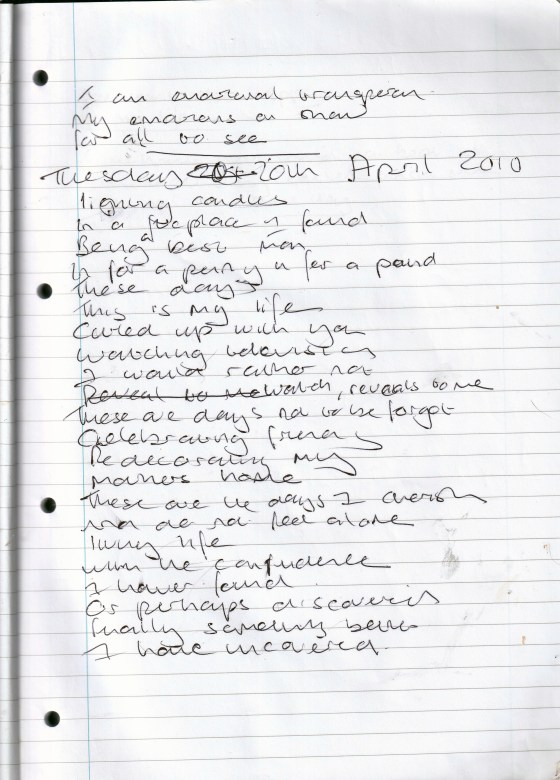 I am emotional transparent
My emotions on show
for all to see
Tuesday 20st 20th April 2010
lighting candles
In a fireplace I found
Being a best man
In for a penny in for a pound
These days
This is my life
Curled up with you
Watching television
I would rather not
Reveal to me watch, reveals to me
These are days not to be forgot
Celebrating friends
Redecorating my
Mothers home
These are the days I cherish
And do not feel alone
living life
with the confidence
I have found
Or perhaps discovered
finally something better
I have uncovered.